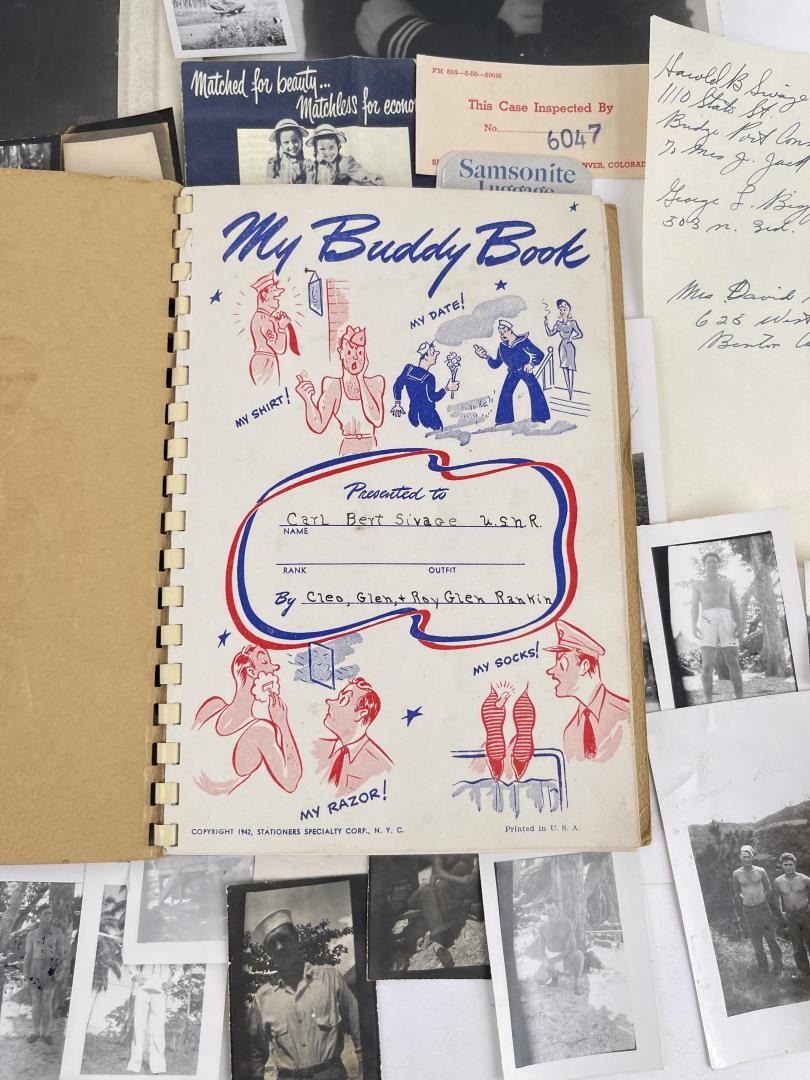 Matched for beauty...
Matchless for econo
FM 503—5-50—600M
This Case Inspected By
No. 6047
NVER, COLORAD
Samsonite
Luggage
Harold B Sivage
1110 State St.
Bridge Port Conn
% Mrs J. Jack
George L.
303 N. 3rd.
Mrs David
625 West
Benton
My Buddy Book
MY SHIRT!
MY DATE!
Presented to
Carl Bert Sivage U.S.N.R.
NAME
RANK OUTFIT
By Cleo, Glen, + Roy Glen Rankin
MY SOCKS!
MY RAZOR!
COPYRIGHT 1942, STATIONERS SPECIALTY CORP., N. Y. C.
Printed in U. S. A.